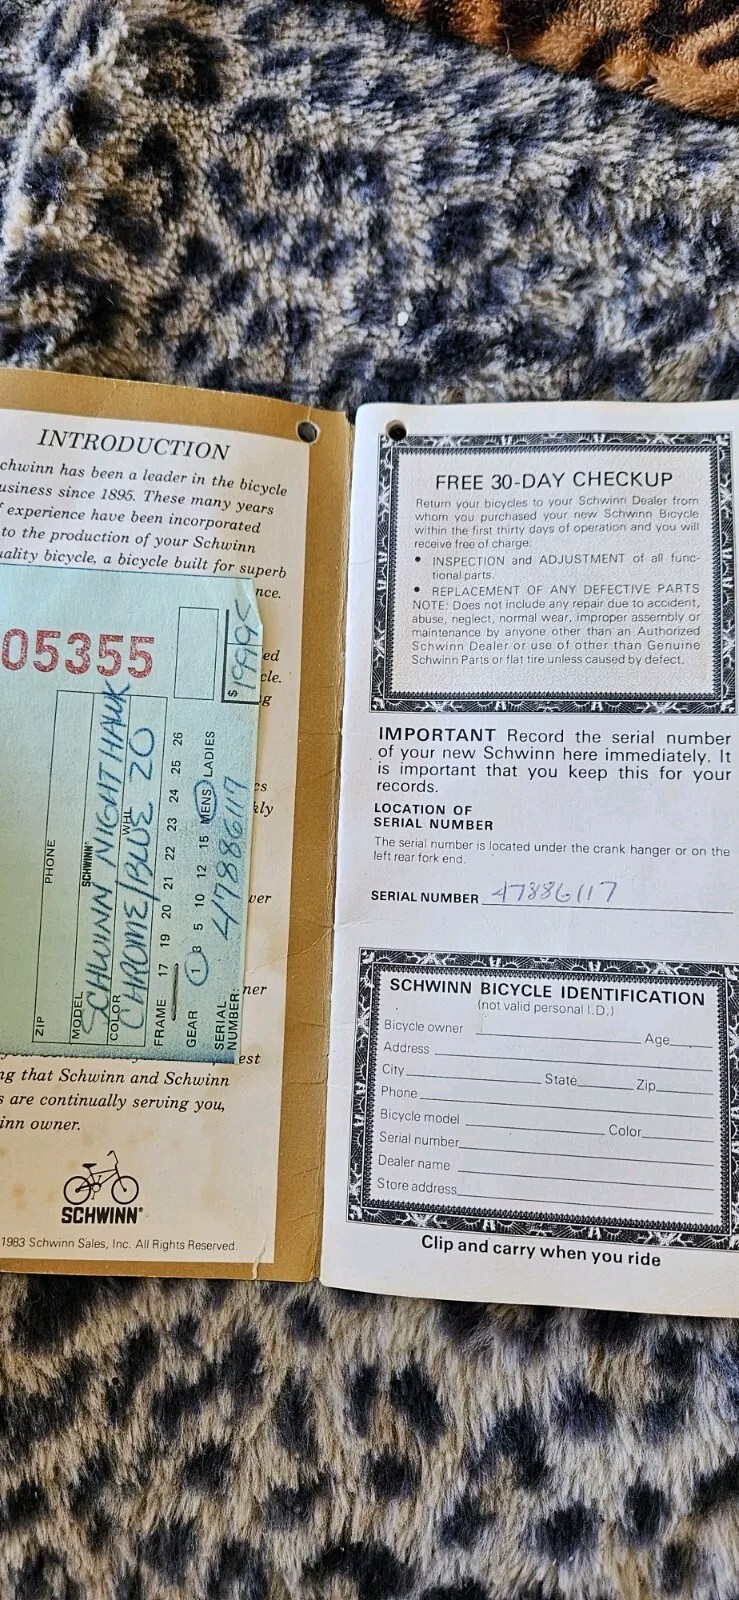 INTRODUCTION
chwinn has been a leader in the bicycle
usiness since 1895. These many years
f experience have been incorporated
to the production of your Schwinn
uality bicycle, a bicycle built for superb
nce.
ed
cle.
g
cs
kly
ver
ner
est
ng that Schwinn and Schwinn
s are continually serving you,
inn owner.
SCHWINN®
1983 Schwinn Sales, Inc. All Rights Reserved.
05355
ZIP
PHONE
MODEL
SCHWINN®
SCHWINN NIGHTHAWK
COLOR
WHL
CHROME/BLUE 20
FRAME 17 19 20 21 22 23 24 25 26
GEAR 1 3 5 10 12 15 MENS LADIES
SERIAL
NUMBER: 47886117
$ 199.95
FREE 30-DAY CHECKUP
Return your bicycles to your Schwinn Dealer from
whom you purchased your new Schwinn Bicycle
within the first thirty days of operation and you will
receive free of charge:
• INSPECTION and ADJUSTMENT of all func-
tional parts.
• REPLACEMENT OF ANY DEFECTIVE PARTS
NOTE: Does not include any repair due to accident,
abuse, neglect, normal wear, improper assembly or
maintenance by anyone other than an Authorized
Schwinn Dealer or use of other than Genuine
Schwinn Parts or flat tire unless caused by defect.
IMPORTANT Record the serial number
of your new Schwinn here immediately. It
is important that you keep this for your
records.
LOCATION OF
SERIAL NUMBER
The serial number is located under the crank hanger or on the
left rear fork end.
SERIAL NUMBER 47886117
SCHWINN BICYCLE IDENTIFICATION
(not valid personal I.D.)
Bicycle owner Age
Address
City State Zip
Phone
Bicycle model Color
Serial number
Dealer name
Store address
Clip and carry when you ride